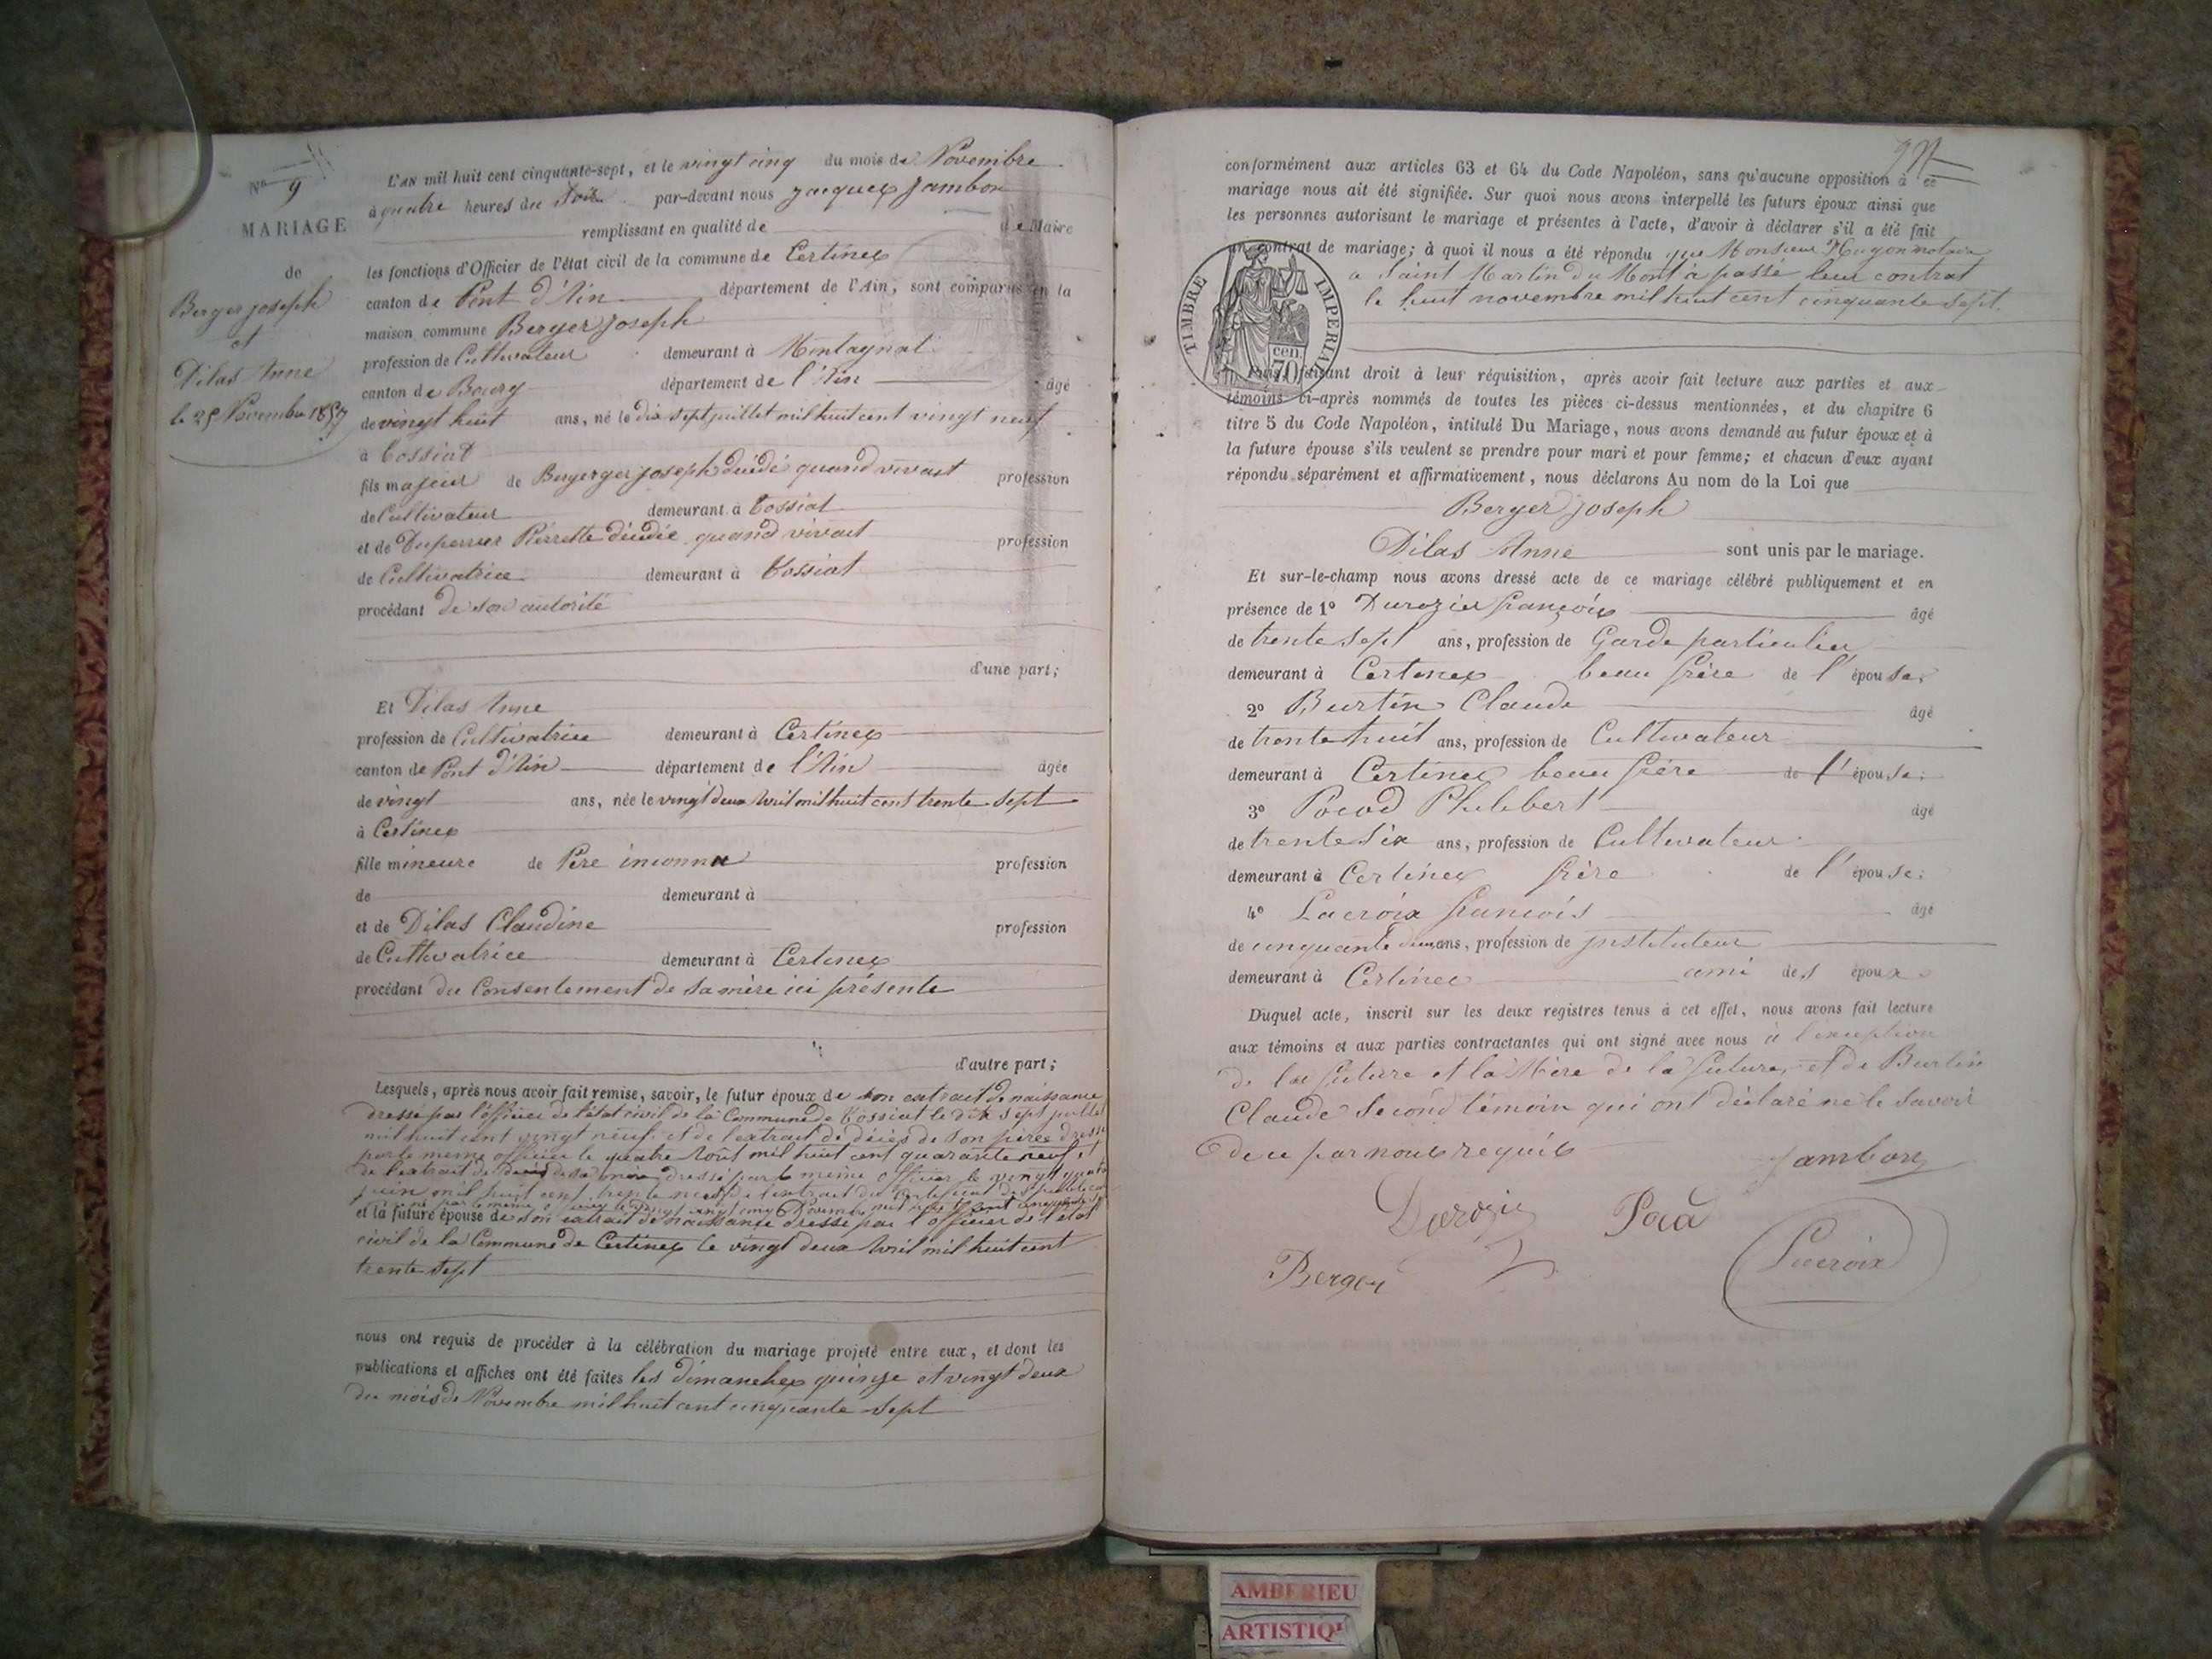 Nº 9
MARIAGE
de
Berger joseph
et
Dilas Anne
le 25 Novembre 1857
L'AN mil huit cent cinquante-sept, et le vingt cinq du mois de Novembre
à quatre heures du Soir par-devant nous jacques jambon
remplissant en qualité de de Maire
les fonctions d'Officier de l'état civil de la commune de Certines
canton de Pont d'Ain département de l'Ain, sont comparus en la
maison commune Berger joseph
profession de Cultivateur demeurant à Montagnat
canton de Bourg département de l'Ain âgé
de vingt huit ans, né le dix sept juillet mil huit cent vingt neuf
à Tossiat
fils majeur de joseph décédé quand vivait profession
de Cultivateur demeurant à Tossiat
et de Duperrier Pierrette décédée quand vivait profession
de Cultivatrice demeurant à Tossiat
procédant de son autorité
d'une part;
Et Dilas Anne
profession de Cultivatrice demeurant à Certines
canton de Pont d'Ain département de l'Ain âgée
de vingt ans, née le vingt deux Avril mil huit cent trente sept
à Certines
fille mineure de Père inconnu profession
de demeurant à
et de Dilas Claudine profession
de Cultivatrice demeurant à Certines
procédant du Consentement de sa mère ici présente
d'autre part;
Lesquels, après nous avoir fait remise, savoir, le futur époux de son extrait de naissance
dressé par l'officier de l'état civil de la Commune de Tossiat le dix sept juillet
mil huit cent vingt neuf et de l'extrait de décès de son père dressé
par le meme officier le quatre Août mil huit cent quarante neuf et
de l'extrait de décès de sa mère dressé par le meme officier le vingt quatre
juin mil huit cent trente neuf de l'extrait du Certificat des
par le meme le vingt cinq Novembre mil huit cent cinquante
et la future épouse de son extrait de naissance dressé par l'officier de l'état
civil de la Commune de Certines le vingt deux Avril mil huit cent
trente sept
nous ont requis de procéder à la célébration du mariage projeté entre eux, et dont les
publications et affiches ont été faites les dimanches quinze et vingt deux
du mois de Novembre mil huit cent cinquante sept
conformément aux articles 63 et 64 du Code Napoléon, sans qu'aucune opposition à ce
mariage nous ait été signifiée. Sur quoi nous avons interpellé les futurs époux ainsi que
les personnes autorisant le mariage et présentes à l'acte, d'avoir à déclarer s'il a été fait
un contrat de mariage; à quoi il nous a été répondu que Monsieur notaire
a Saint Martin du Mont à passé leur contrat
le huit novembre mil huit cent cinquante sept.
TIMBRE IMPERIAL
70 cen.
Puis, faisant droit à leur réquisition, après avoir fait lecture aux parties et aux
témoins ci-après nommés de toutes les pièces ci-dessus mentionnées, et du chapitre 6
titre 5 du Code Napoléon, intitulé Du Mariage, nous avons demandé au futur époux et à
la future épouse s'ils veulent se prendre pour mari et pour femme; et chacun d'eux ayant
répondu séparément et affirmativement, nous déclarons Au nom de la Loi que
Berger joseph
Dilas Anne sont unis par le mariage.
Et sur-le-champ nous avons dressé acte de ce mariage célébré publiquement et en
présence de 1º Durozier françois âgé
de trente sept ans, profession de Garde particulier
demeurant à Certines beau frère de l'épouse;
2º Burtin Claude âgé
de trente huit ans, profession de Cultivateur
demeurant à Certines beau frère de l'épouse;
3º Pocod Philibert âgé
de trente six ans, profession de Cultivateur
demeurant à Certines frère de l'épouse;
4º Lacroix françois âgé
de cinquante deux ans, profession de jnstituteur
demeurant à Certines ami des époux
Duquel acte, inscrit sur les deux registres tenus à cet effet, nous avons fait lecture
aux témoins et aux parties contractantes qui ont signé avec nous à l'exception
de la future et la Mère de la future, et de Burtin
Claude Second témoin qui ont déclaré ne le savoir
de ce par nous requis Jambon
Durozier
Berger
Lacroix
AMBERIEU
ARTISTIQ